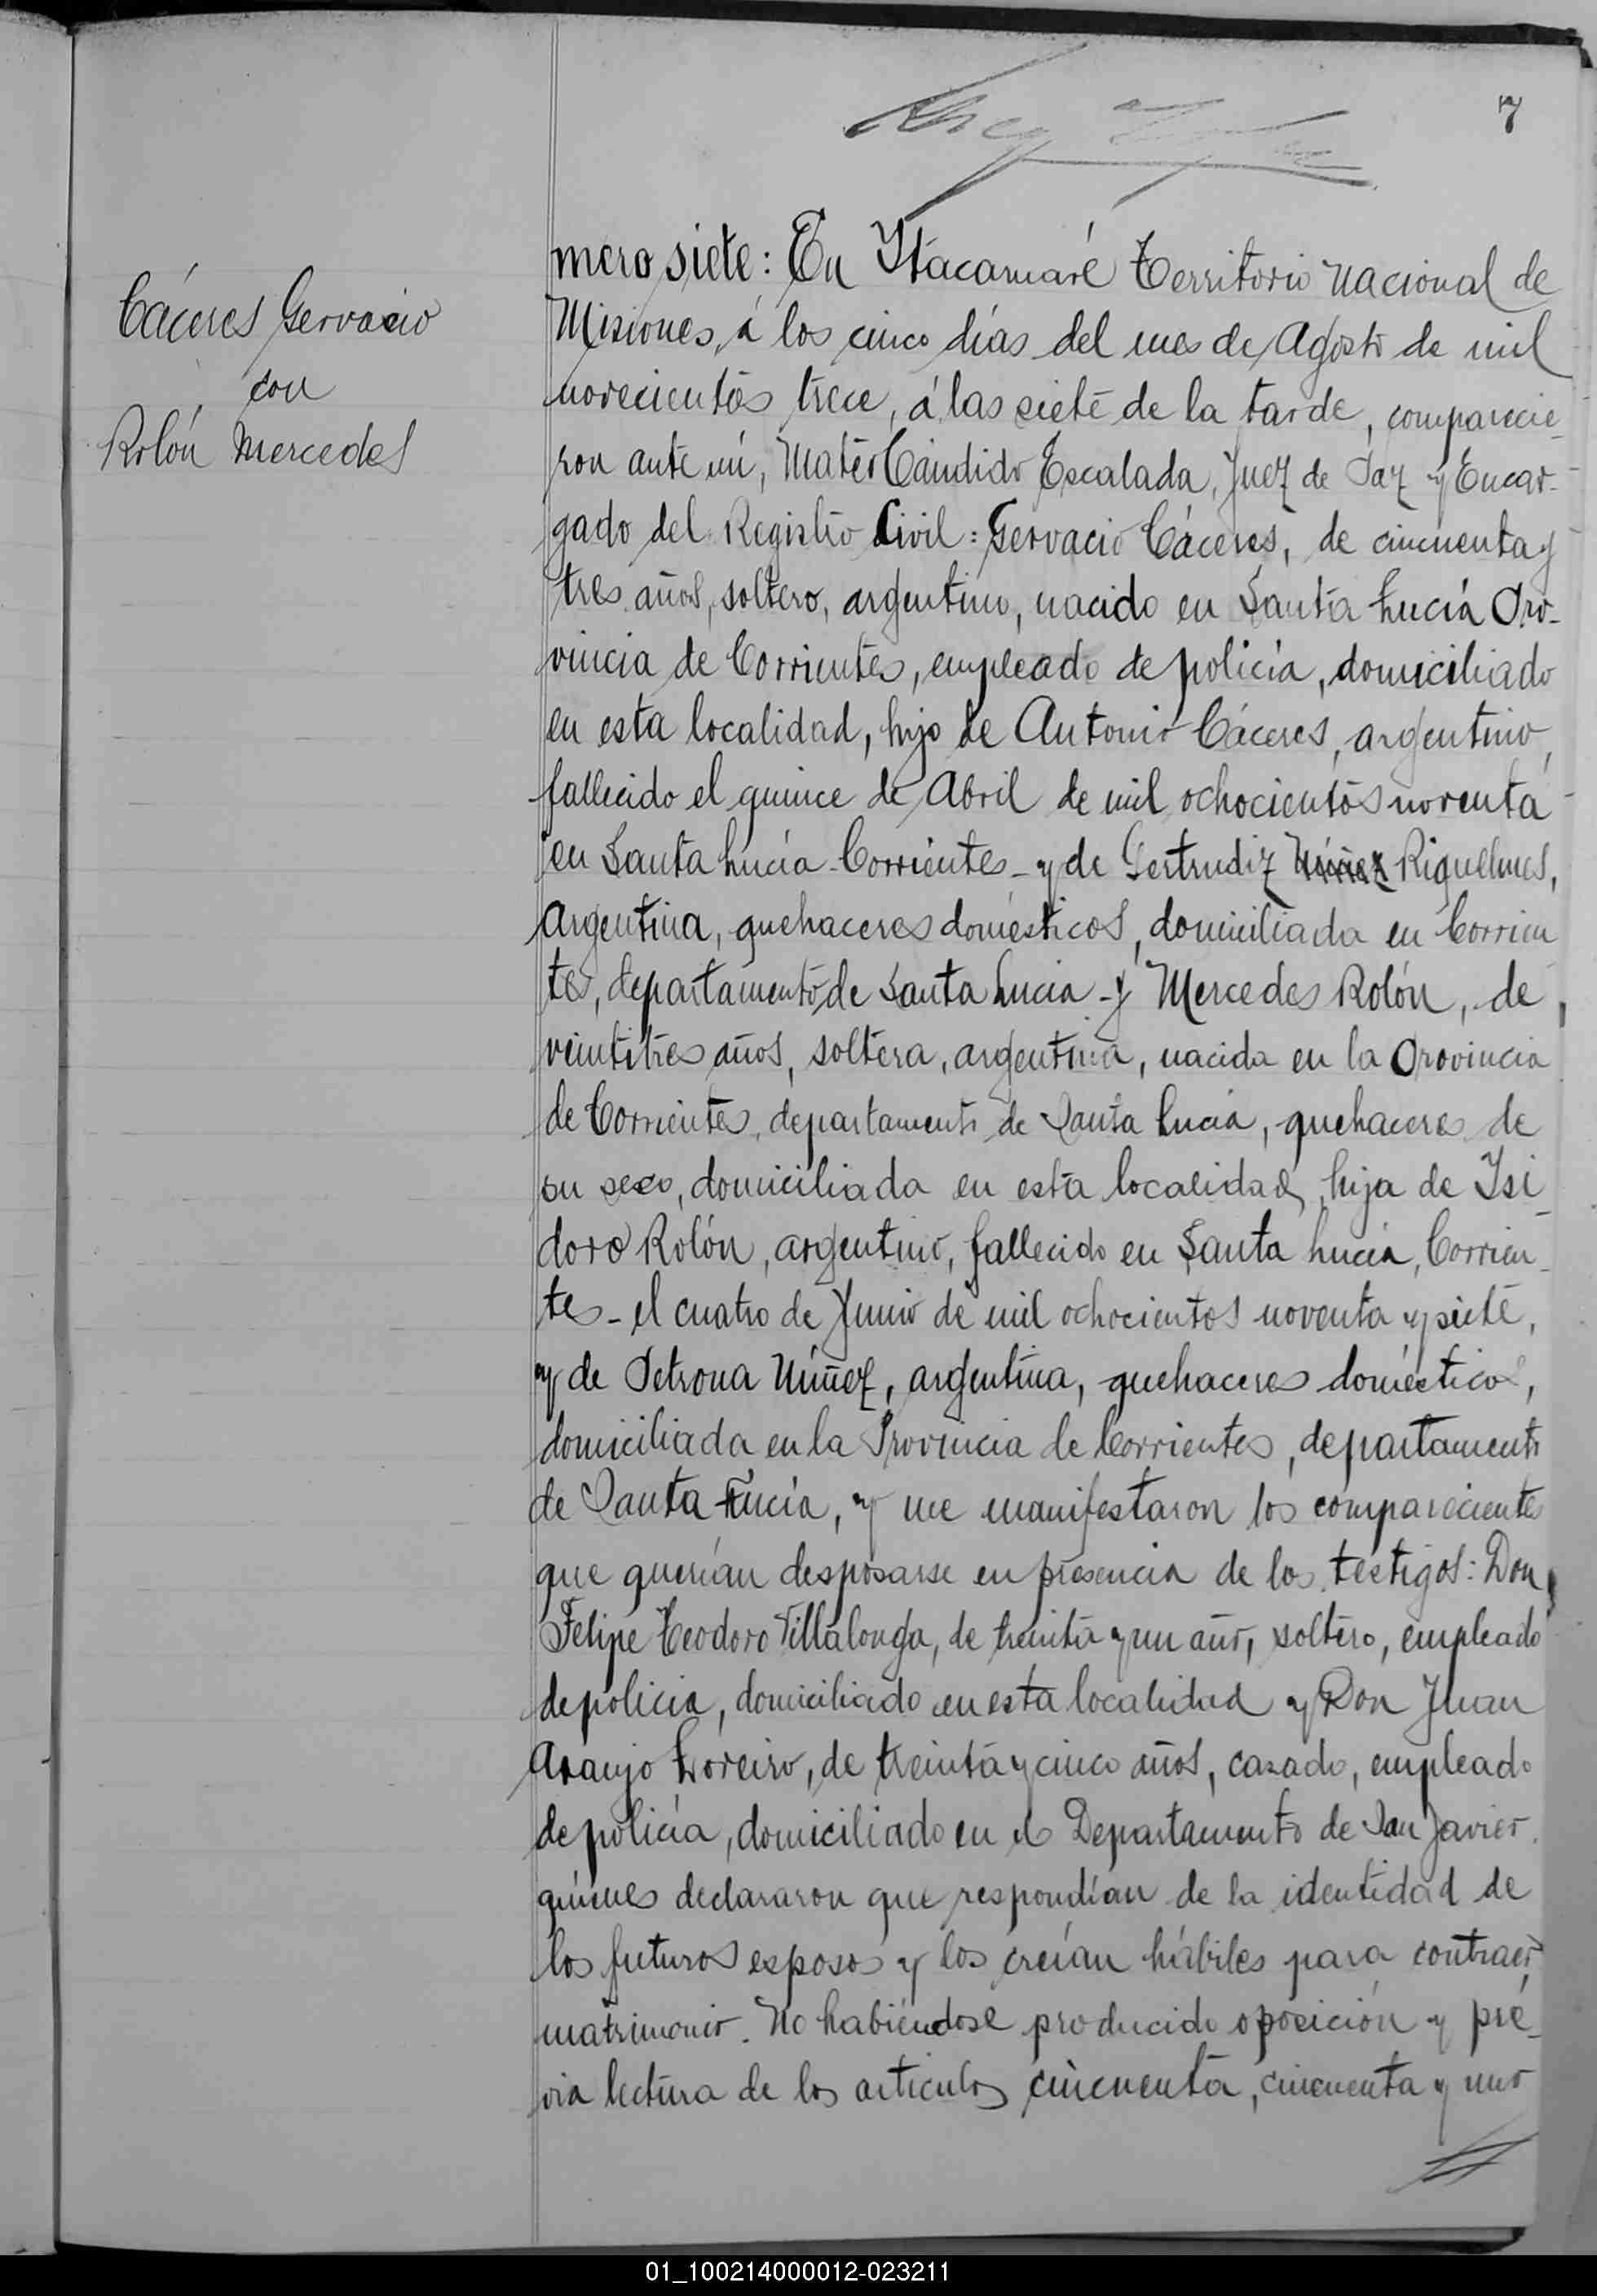 7
Cáceres Gervacio
con
Rolón Mercedes
mero siete: En Itacaruaré Territorio Nacional de
Misiones, á los cinco días del mes de Agosto de mil
novecientos trece, á las siete de la tarde, comparecie-
ron ante mí, Mateo Cándido Escalada, Juez de Paz y Encar-
gado del Registro Civil: Gervacio Cáceres, de cincuenta y
tres años, soltero, argentino, nacido en Santa Lucía Pro-
vincia de Corrientes, empleado de policía, domiciliado
en esta localidad, hijo de Antonio Cáceres, argentino,
fallecido el quince de Abril de mil ochocientos noventa
en Santa Lucía - Corrientes - y de Gertrudiz Núñez Riquelmes,
argentina, quehaceres domésticos, domiciliada en Corrien
tes, departamento de Santa Lucia - y Mercedes Rolón, de
veintitres años, soltera, argentina, nacida en la Provincia
de Corrientes, departamento de Santa Lucia, quehaceres de
su sexo, domiciliada en esta localidad, hija de Isi-
doro Rolón, argentino, fallecido en Santa Lucía, Corrien-
tes - el cuatro de Junio de mil ochocientos noventa y siete,
y de Petrona Núñez, argentina, quehaceres domésticos,
domiciliada en la Provincia de Corrientes, departamento
de Santa Lucía, y me manifestaron los comparecientes
que querían desposarse en presencia de los testigos: Don
Felipe Teodoro Villalonga, de treinta y un año, soltero, empleado
de policía, domiciliado en esta localidad y Don Juan
Araujo Loreiro, de treinta y cinco años, casado, empleado
de policía, domiciliado en el Departamento de San Javier.
quienes declararon que respondían de la identidad de
los futuros esposos y los creían hábiles para contraer
matrimonio. No habiéndose producido oposición y pré-
via lectura de los artículos cincuenta, cincuenta y uno
01_100214000012-023211